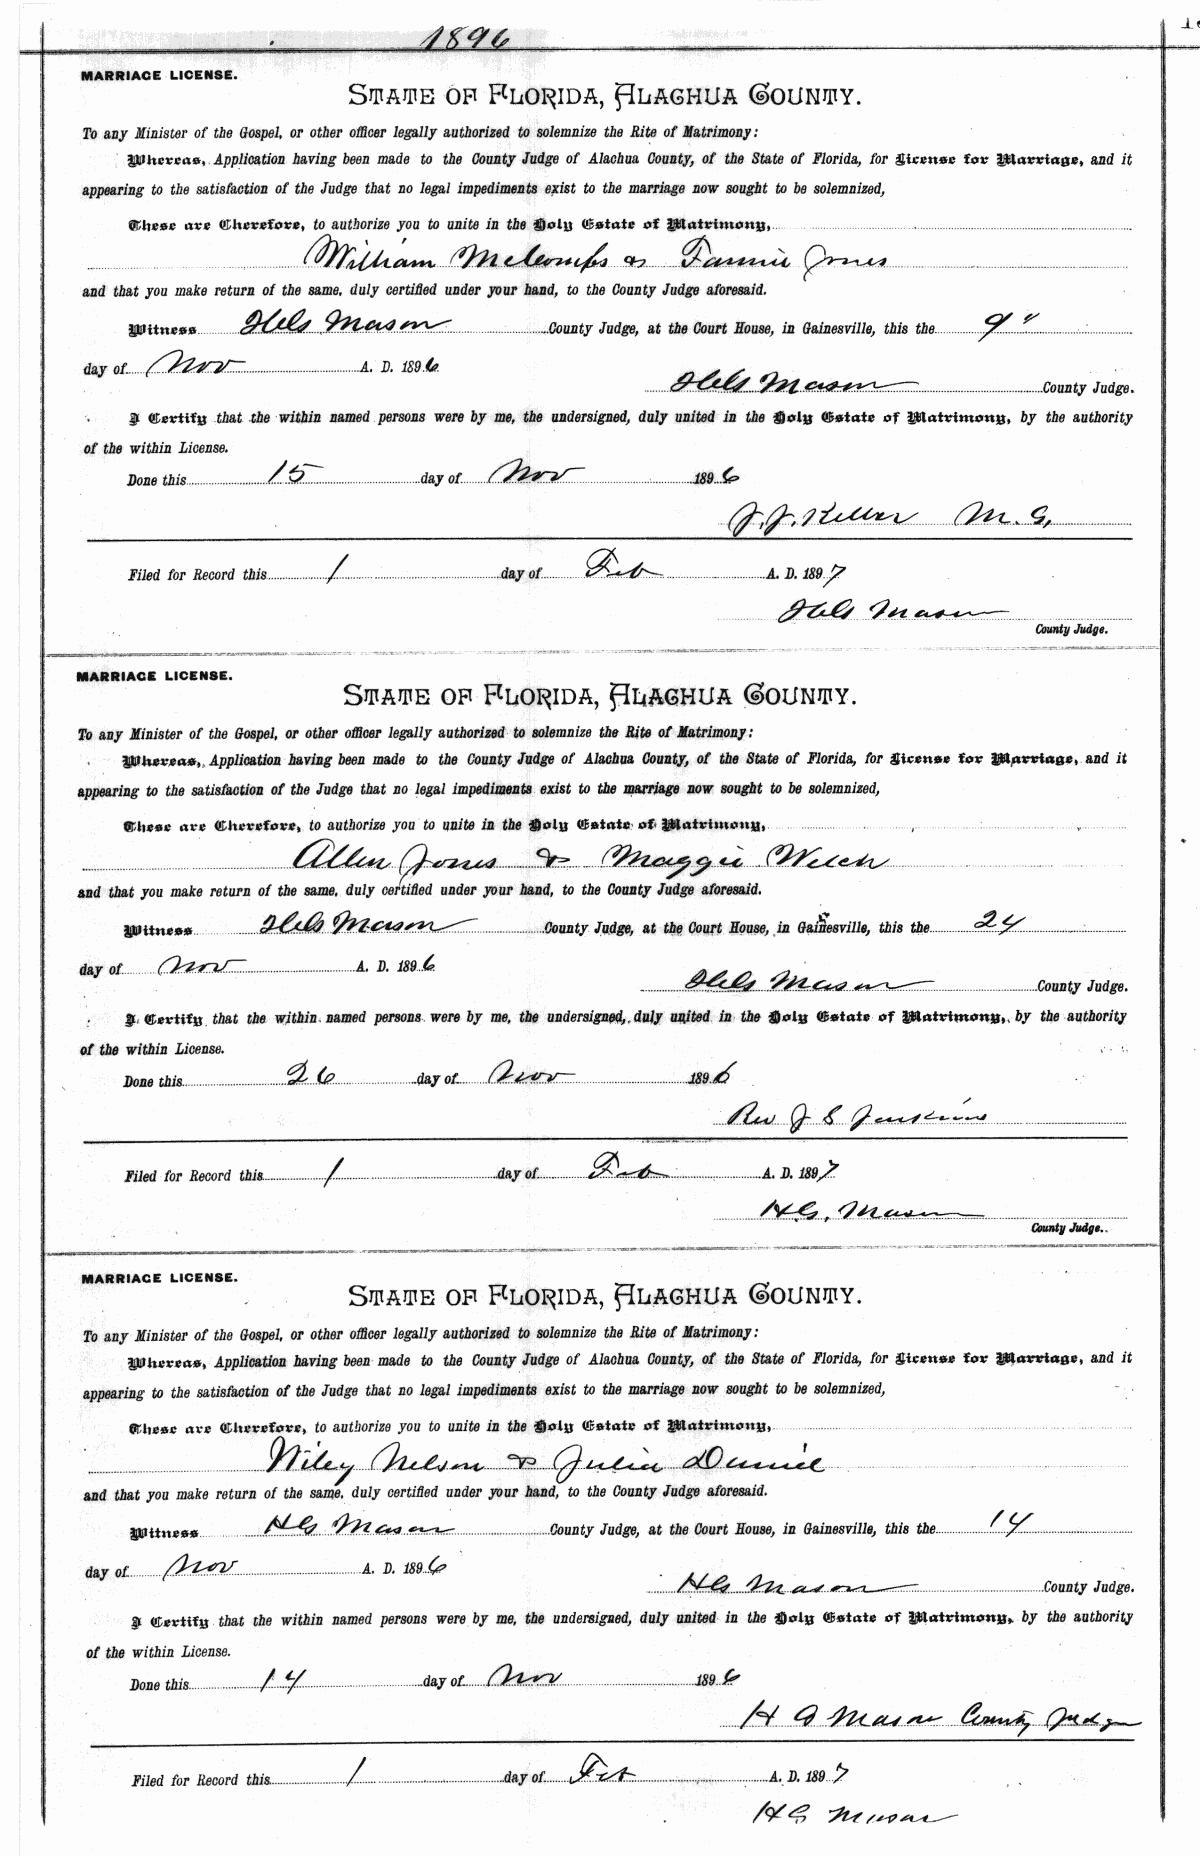 1896
MARRIAGE LICENSE.
STATE OF FLORIDA, ALACHUA COUNTY.
To any Minister of the Gospel, or other officer legally authorized to solemnize the Rite of Matrimony:
Whereas, Application having been made to the County Judge of Alachua County, of the State of Florida, for License for Marriage, and it
appearing to the satisfaction of the Judge that no legal impediments exist to the marriage now sought to be solemnized,
These are Therefore, to authorize you to unite in the Holy Estate of Matrimony,
William McCombs & Fannie Jones
and that you make return of the same, duly certified under your hand, to the County Judge aforesaid.
Witness HG Mason County Judge, at the Court House, in Gainesville, this the 9"
day of Nov A. D. 1896
HG Mason County Judge.
I Certify that the within named persons were by me, the undersigned, duly united in the Holy Estate of Matrimony, by the authority
of the within License.
Done this 15 day of Nov 1896
J. J. Keller M. G.
Filed for Record this 1 day of Feb A. D. 1897
HG Mason
County Judge.
MARRIAGE LICENSE.
STATE OF FLORIDA, ALACHUA COUNTY.
To any Minister of the Gospel, or other officer legally authorized to solemnize the Rite of Matrimony:
Whereas, Application having been made to the County Judge of Alachua County, of the State of Florida, for License for Marriage, and it
appearing to the satisfaction of the Judge that no legal impediments exist to the marriage now sought to be solemnized,
These are Therefore, to authorize you to unite in the Holy Estate of Matrimony,
Allen Jones & Maggie Welch
and that you make return of the same, duly certified under your hand, to the County Judge aforesaid.
Witness HG Mason County Judge, at the Court House, in Gainesville, this the 24
day of Nov A. D. 1896
HG Mason County Judge.
I Certify that the within named persons were by me, the undersigned, duly united in the Holy Estate of Matrimony, by the authority
of the within License.
Done this 26 day of Nov 1896
Rev J S Jenkins
Filed for Record this 1 day of Feb A. D. 1897
H.G. Mason
County Judge.
MARRIAGE LICENSE.
STATE OF FLORIDA, ALACHUA COUNTY.
To any Minister of the Gospel, or other officer legally authorized to solemnize the Rite of Matrimony:
Whereas, Application having been made to the County Judge of Alachua County, of the State of Florida, for License for Marriage, and it
appearing to the satisfaction of the Judge that no legal impediments exist to the marriage now sought to be solemnized,
These are Therefore, to authorize you to unite in the Holy Estate of Matrimony,
Wiley Nelson & Julia Daniel
and that you make return of the same, duly certified under your hand, to the County Judge aforesaid.
Witness HG Mason County Judge, at the Court House, in Gainesville, this the 14
day of Nov A. D. 1896
HG Mason County Judge.
I Certify that the within named persons were by me, the undersigned, duly united in the Holy Estate of Matrimony, by the authority
of the within License.
Done this 14 day of Nov 1896
H G Mason County Judge
Filed for Record this 1 day of Feb A. D. 1897
H G Mason